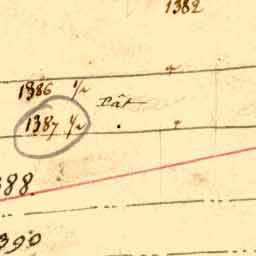 1382
1386 ½
Pât
1387 ½
388
390